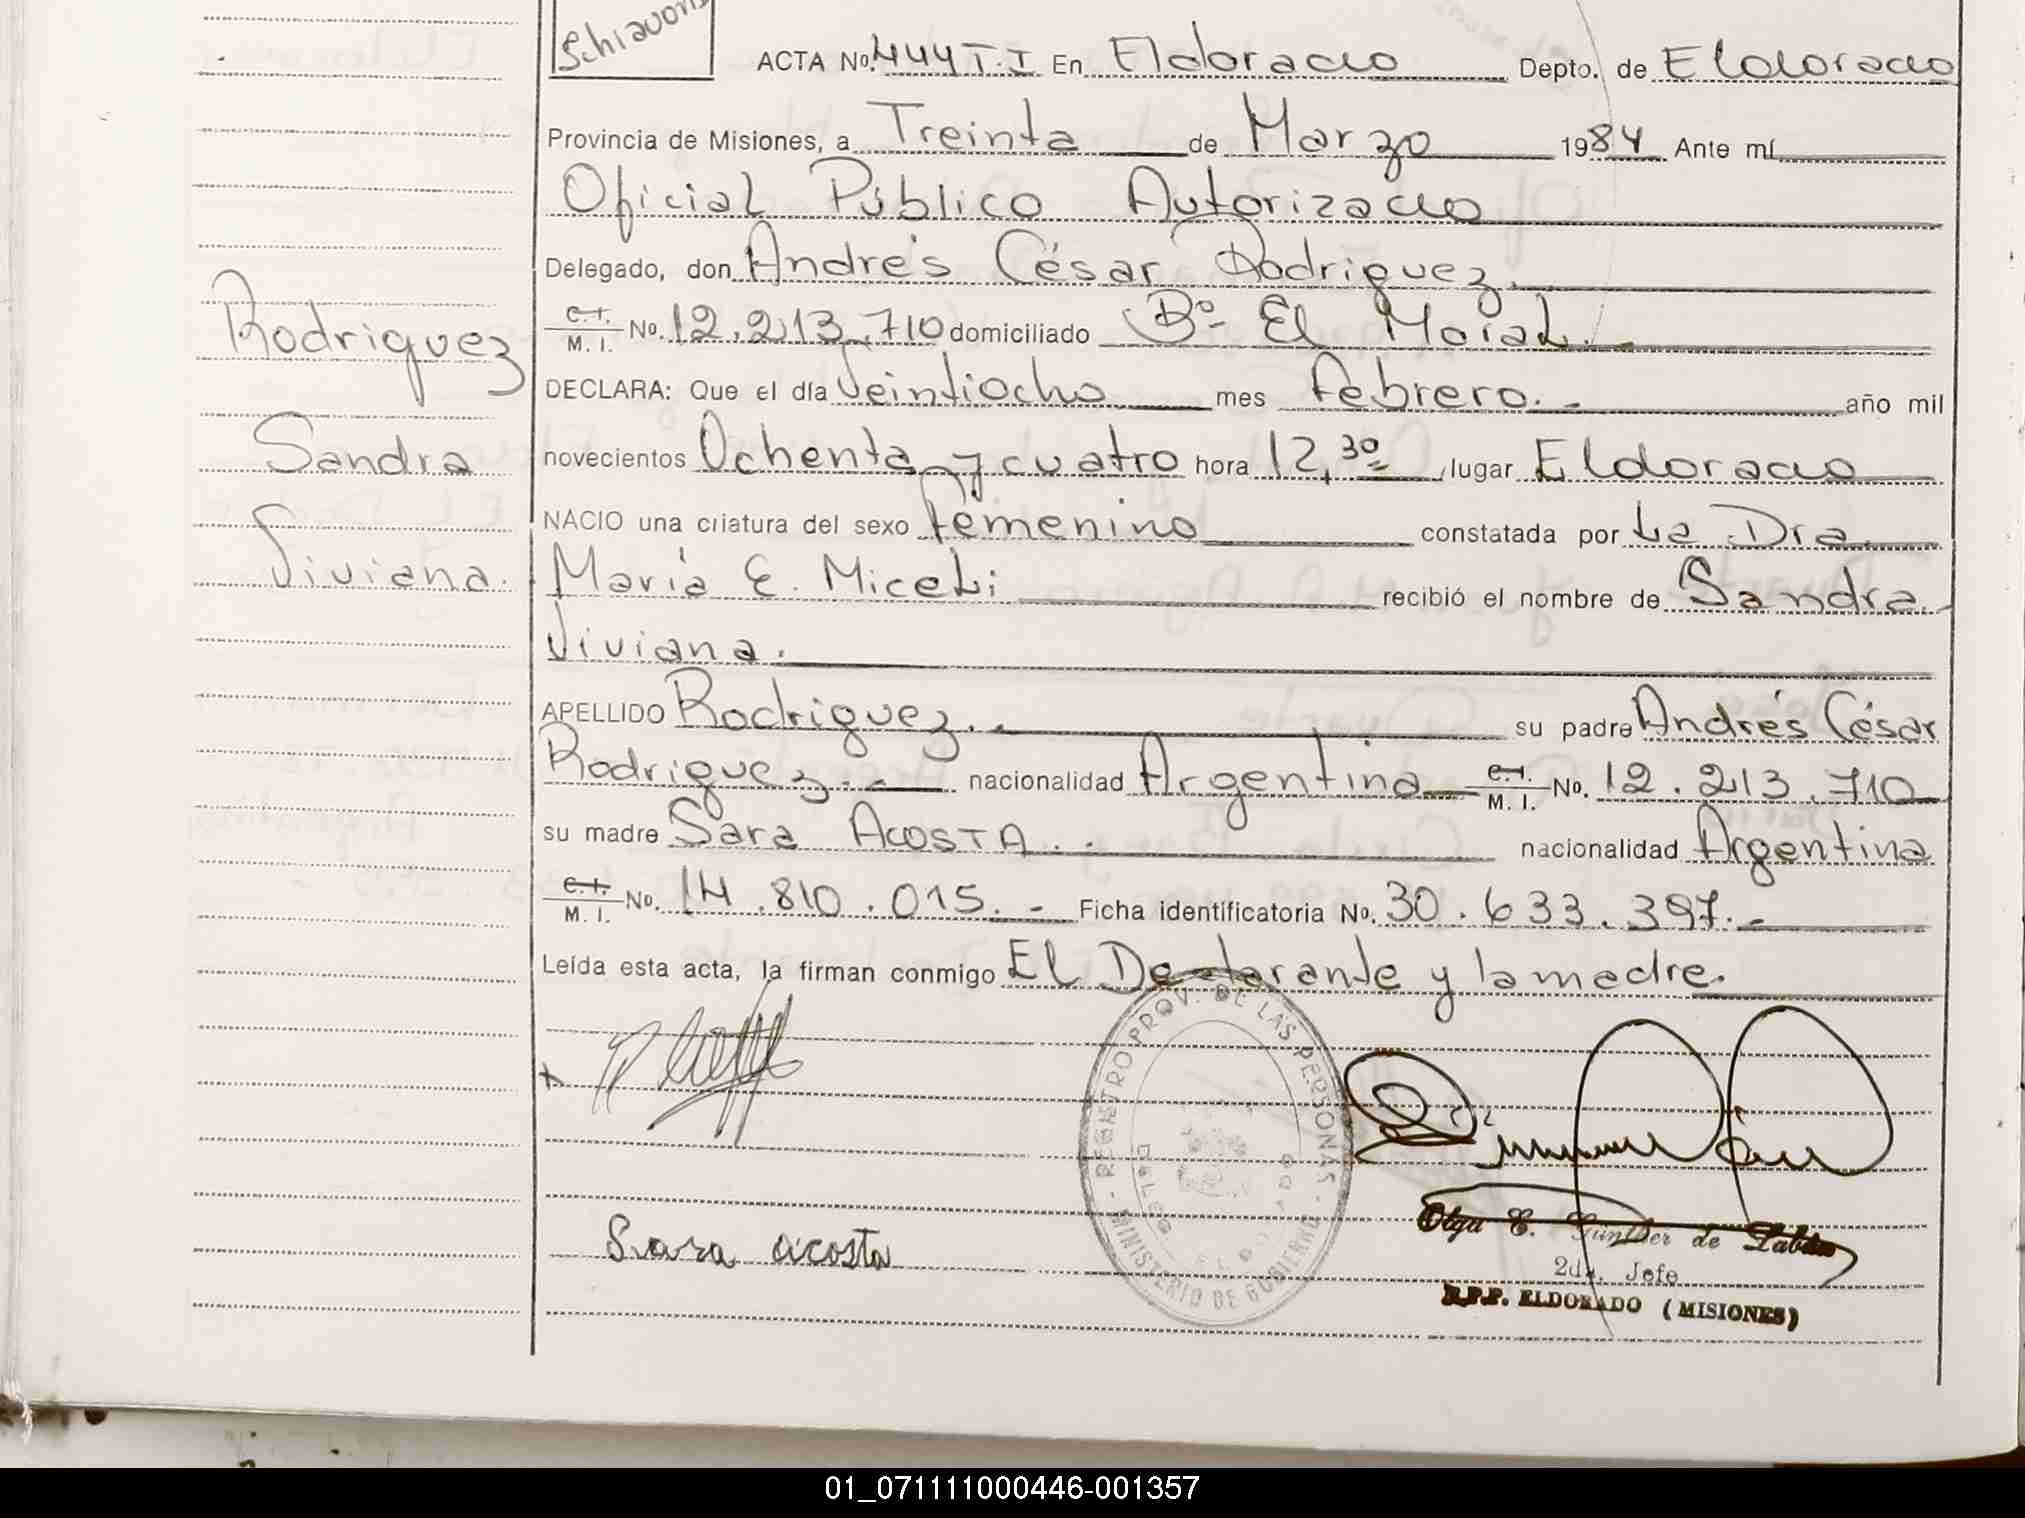 Schiavoni
ACTA No. 444 T. I En Eldorado Depto. de Eldorado
Provincia de Misiones, a Treinta de Marzo 1984 Ante mí
Oficial Público Autorizado
Delegado, don Andrés César Rodriguez.
C.I. M. I. No. 12.213.710 domiciliado Bº El
DECLARA: Que el día Veintiocho mes Febrero. año mil
novecientos Ochenta y cuatro hora 12,30 lugar Eldorado
NACIO una criatura del sexo femenino constatada por La Dra.
María E. Miceli recibió el nombre de Sandra
Viviana.
APELLIDO Rodriguez. su padre Andrés César
Rodriguez. nacionalidad Argentina C.I. M. I. No. 12.213.710
su madre Sara Acosta. nacionalidad Argentina
C.I. M. I. No. 14.810.015. Ficha identificatoria No. 30.633.397.
Leída esta acta, la firman conmigo El Declarante y la madre.
Rodriguez
Sandra
Viviana.
REGISTRO PROV. DE LAS PERSONAS
MINISTERIO DE GOBIERNO
Sara acosta
Olga E. Günther de
2da. Jefe
R.P.P. ELDORADO (MISIONES)
01_071111000446-001357